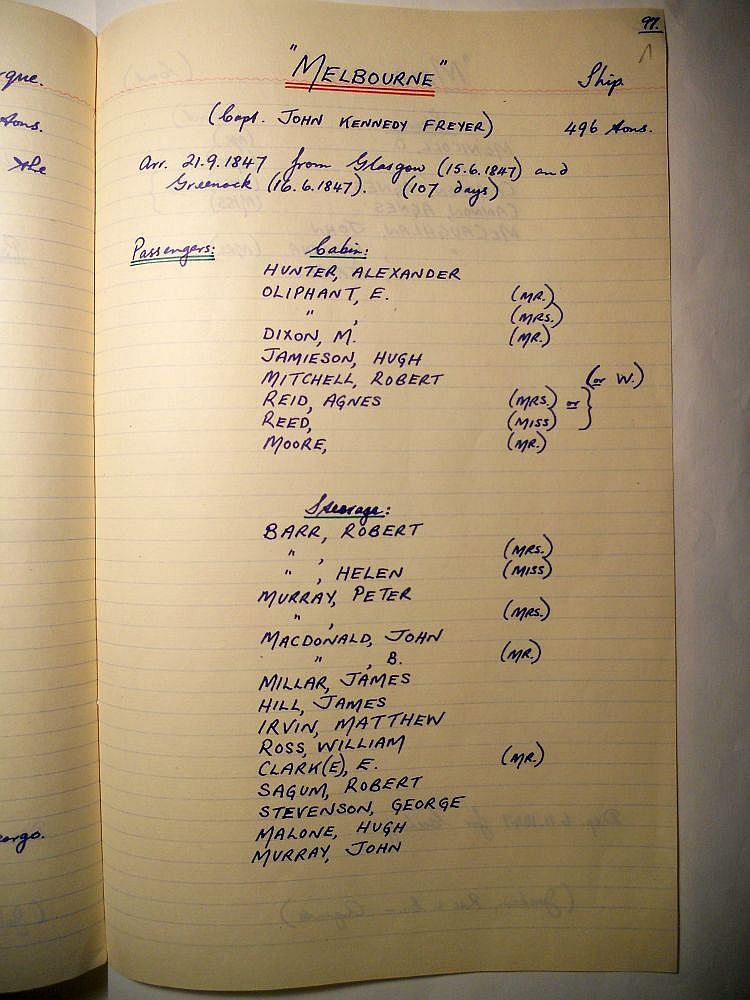 97.
"MELBOURNE" Ship.
(Capt. JOHN KENNEDY FREYER) 496 tons.
Arr. 21.9.1847 from Glasgow (15.6.1847) and
Greenock (16.6.1847). (107 days)
Passengers: Cabin:
HUNTER, ALEXANDER
OLIPHANT, E. (MR.)
" , (MRS.)
DIXON, M. (MR.)
JAMIESON, HUGH
MITCHELL, ROBERT (or W.)
REID, AGNES (MRS.) or }
REED, (MISS)
MOORE, (MR.)
Steerage:
BARR, ROBERT
" , (MRS.)
" , HELEN (MISS)
MURRAY, PETER
" , (MRS.)
MACDONALD, JOHN
" , B. (MR.)
MILLAR, JAMES
HILL, JAMES
IRVIN, MATTHEW
ROSS, WILLIAM
CLARK(E), E. (MR.)
SAGUM, ROBERT
STEVENSON, GEORGE
MALONE, HUGH
MURRAY, JOHN
tons.
the
cargo.